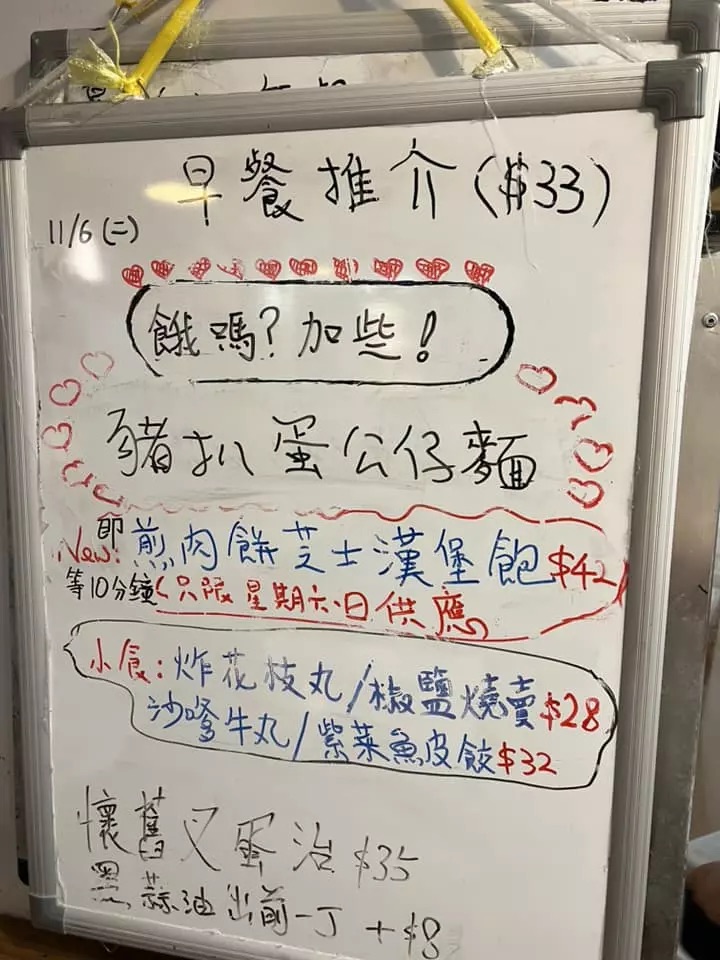 早餐推介($33)
11/6(二)
餓嗎?加些!
豬扒蛋公仔麵
New:即煎肉餅芝士漢堡飽$42
等10分鐘(只限星期六、日供應)
小食:炸花枝丸/椒鹽燒賣$28
沙嗲牛丸/紫菜魚皮餃$32
懷舊叉蛋治 $35
黑蒜油出前一丁 +$8